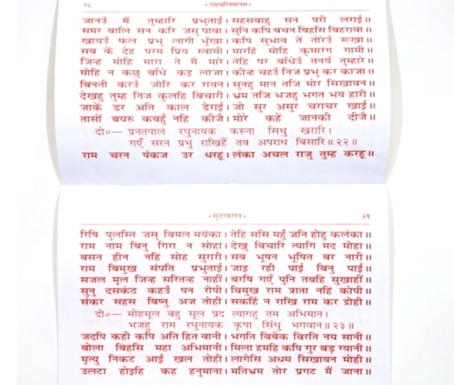 २८ रामचरितमानस
जानउँ मैं तुम्हारि प्रभुताई। सहसबाहु सन परी लराई॥
समर बालि सन करि जसु पावा। सुनि कपि बचन बिहसि बिहरावा॥
खायउँ फल प्रभु लागी भूँखा। कपि सुभाव तें तोरेउँ रूखा॥
सब कें देह परम प्रिय स्वामी। मारहिं मोहि कुमारग गामी॥
जिन्ह मोहि मारा ते मैं मारे। तेहि पर बाँधेउँ तनयँ तुम्हारे॥
मोहि न कछु बाँधे कइ लाजा। कीन्ह चहउँ निज प्रभु कर काजा॥
बिनती करउँ जोरि कर रावन। सुनहु मान तजि मोर सिखावन॥
देखहु तुम्ह निज कुलहि बिचारी। भ्रम तजि भजहु भगत भय हारी॥
जाकें डर अति काल डेराई। जो सुर असुर चराचर खाई॥
तासों बयरु कबहुँ नहिं कीजै। मोरे कहें जानकी दीजै॥
दो०— प्रनतपाल रघुनायक करुना सिंधु खरारि।
गएँ सरन प्रभु राखिहैं तव अपराध बिसारि॥२२॥
राम चरन पंकज उर धरहू। लंका अचल राजु तुम्ह करहू॥
सुन्दरकाण्ड २९
रिषि पुलस्ति जसु बिमल मयंका। तेहि ससि महुँ जनि होहु कलंका॥
राम नाम बिनु गिरा न सोहा। देखु बिचारि त्यागि मद मोहा॥
बसन हीन नहिं सोह सुरारी। सब भूषन भूषित बर नारी॥
राम बिमुख संपति प्रभुताई। जाइ रही पाई बिनु पाई॥
सजल मूल जिन्ह सरितन्ह नाहीं। बरषि गएँ पुनि तबहिं सुखाहीं॥
सुनु दसकंठ कहउँ पन रोपी। बिमुख राम त्राता नहिं कोपी॥
संकर सहस बिष्नु अज तोही। सकहिं न राखि राम कर द्रोही॥
दो०— मोहमूल बहु सूल प्रद त्यागहु तम अभिमान।
भजहु राम रघुनायक कृपा सिंधु भगवान॥२३॥
जदपि कही कपि अति हित बानी। भगति बिबेक बिरति नय सानी॥
बोला बिहसि महा अभिमानी। मिला हमहि कपि गुर बड़ ग्यानी॥
मृत्यु निकट आई खल तोही। लागेसि अधम सिखावन मोही॥
उलटा होइहि कह हनुमाना। मतिभ्रम तोर प्रगट मैं जाना॥